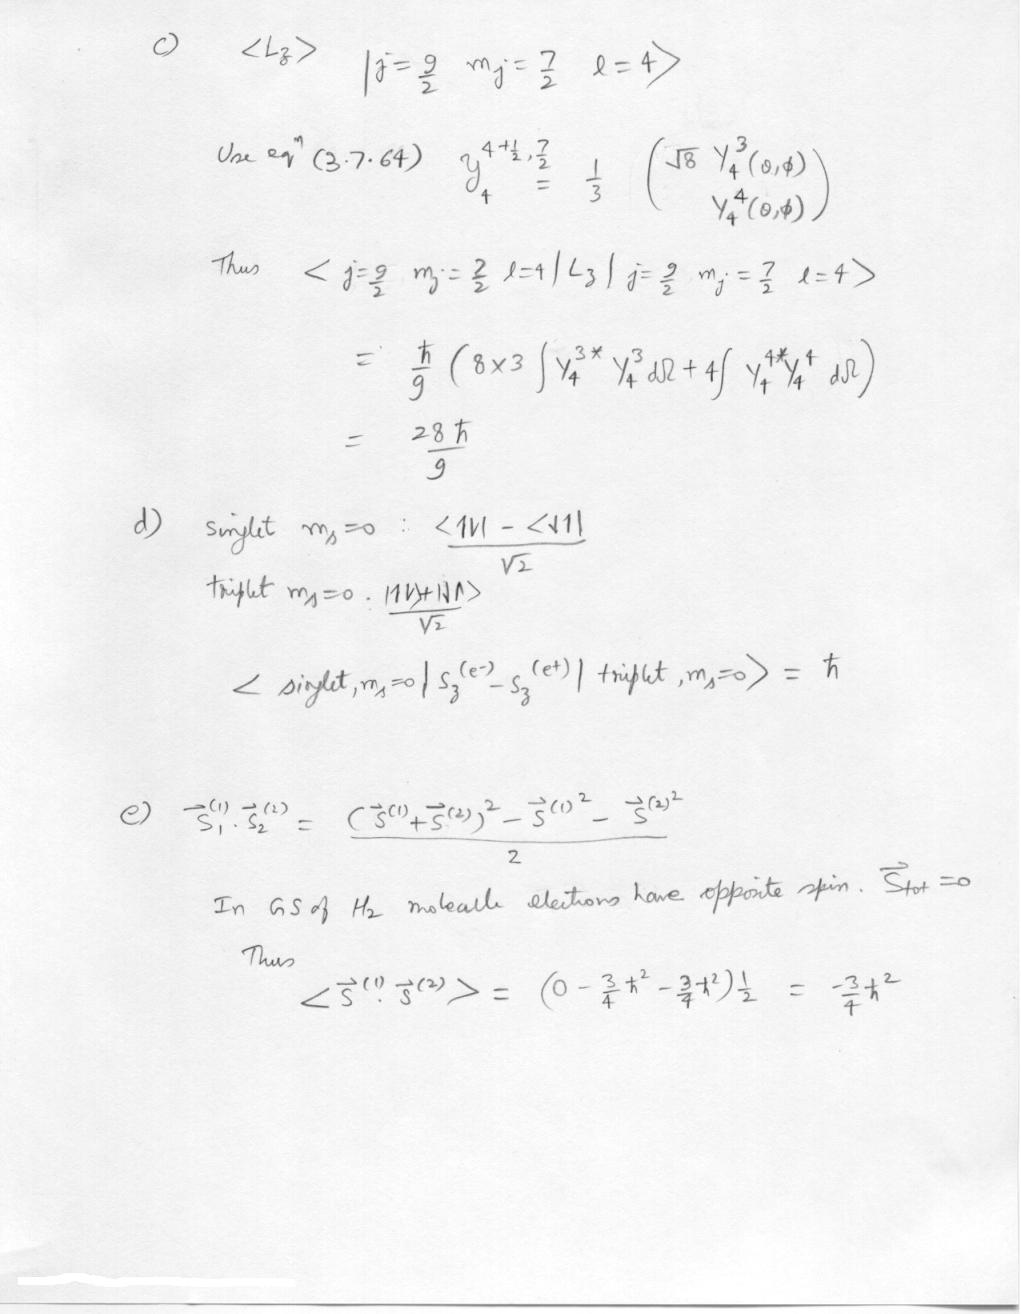 c) <L_z> |j = 9/2 m_j = 7/2 l = 4>
Use eqⁿ (3.7.64) y_4^{4+1/2, 7/2} = 1/3 ( √8 Y_4^3 (θ,ϕ)
Y_4^4 (θ,ϕ) )
Thus < j = 9/2 m_j = 7/2 l=4 | L_z | j = 9/2 m_j = 7/2 l=4 >
= ħ/9 ( 8×3 ∫ Y_4^{3*} Y_4^3 dΩ + 4∫ Y_4^{4*} Y_4^4 dΩ )
= 28ħ/9
d) singlet m_s=0 : (<↑↓| - <↓↑|)/√2
triplet m_s=0 . (|↑↓> + |↓↑>)/√2
< singlet, m_s=0 | S_z^{(e-)} - S_z^{(e+)} | triplet, m_s=0 > = ħ
e) S⃗_1^{(1)} . S⃗_2^{(2)} = ((S⃗^{(1)} + S⃗^{(2)})² - S⃗^{(1)²} - S⃗^{(2)²})/2
In GS of H₂ molecule electrons have opposite spin. S⃗_tot = 0
Thus
< S⃗^{(1)} . S⃗^{(2)} > = (0 - 3/4 ħ² - 3/4 ħ²) 1/2 = -3/4 ħ²